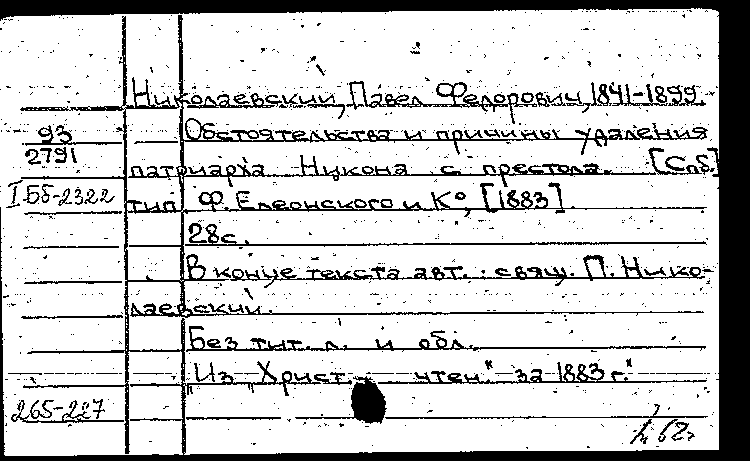 Николаевский, Павел Федорович, 1841-1899.
93
2791
Обстоятельства и причины удаления
патриарха Никона с престола. [Спб]
I Бб-2322
тип. Ф. Елеонского и К°, [1883]
28с.
В конце текста авт.: свящ. П. Нико-
лаевский.
Без тит. л. и обл.
"Из "Христ. чтен." за 1883 г."
265-227
62г